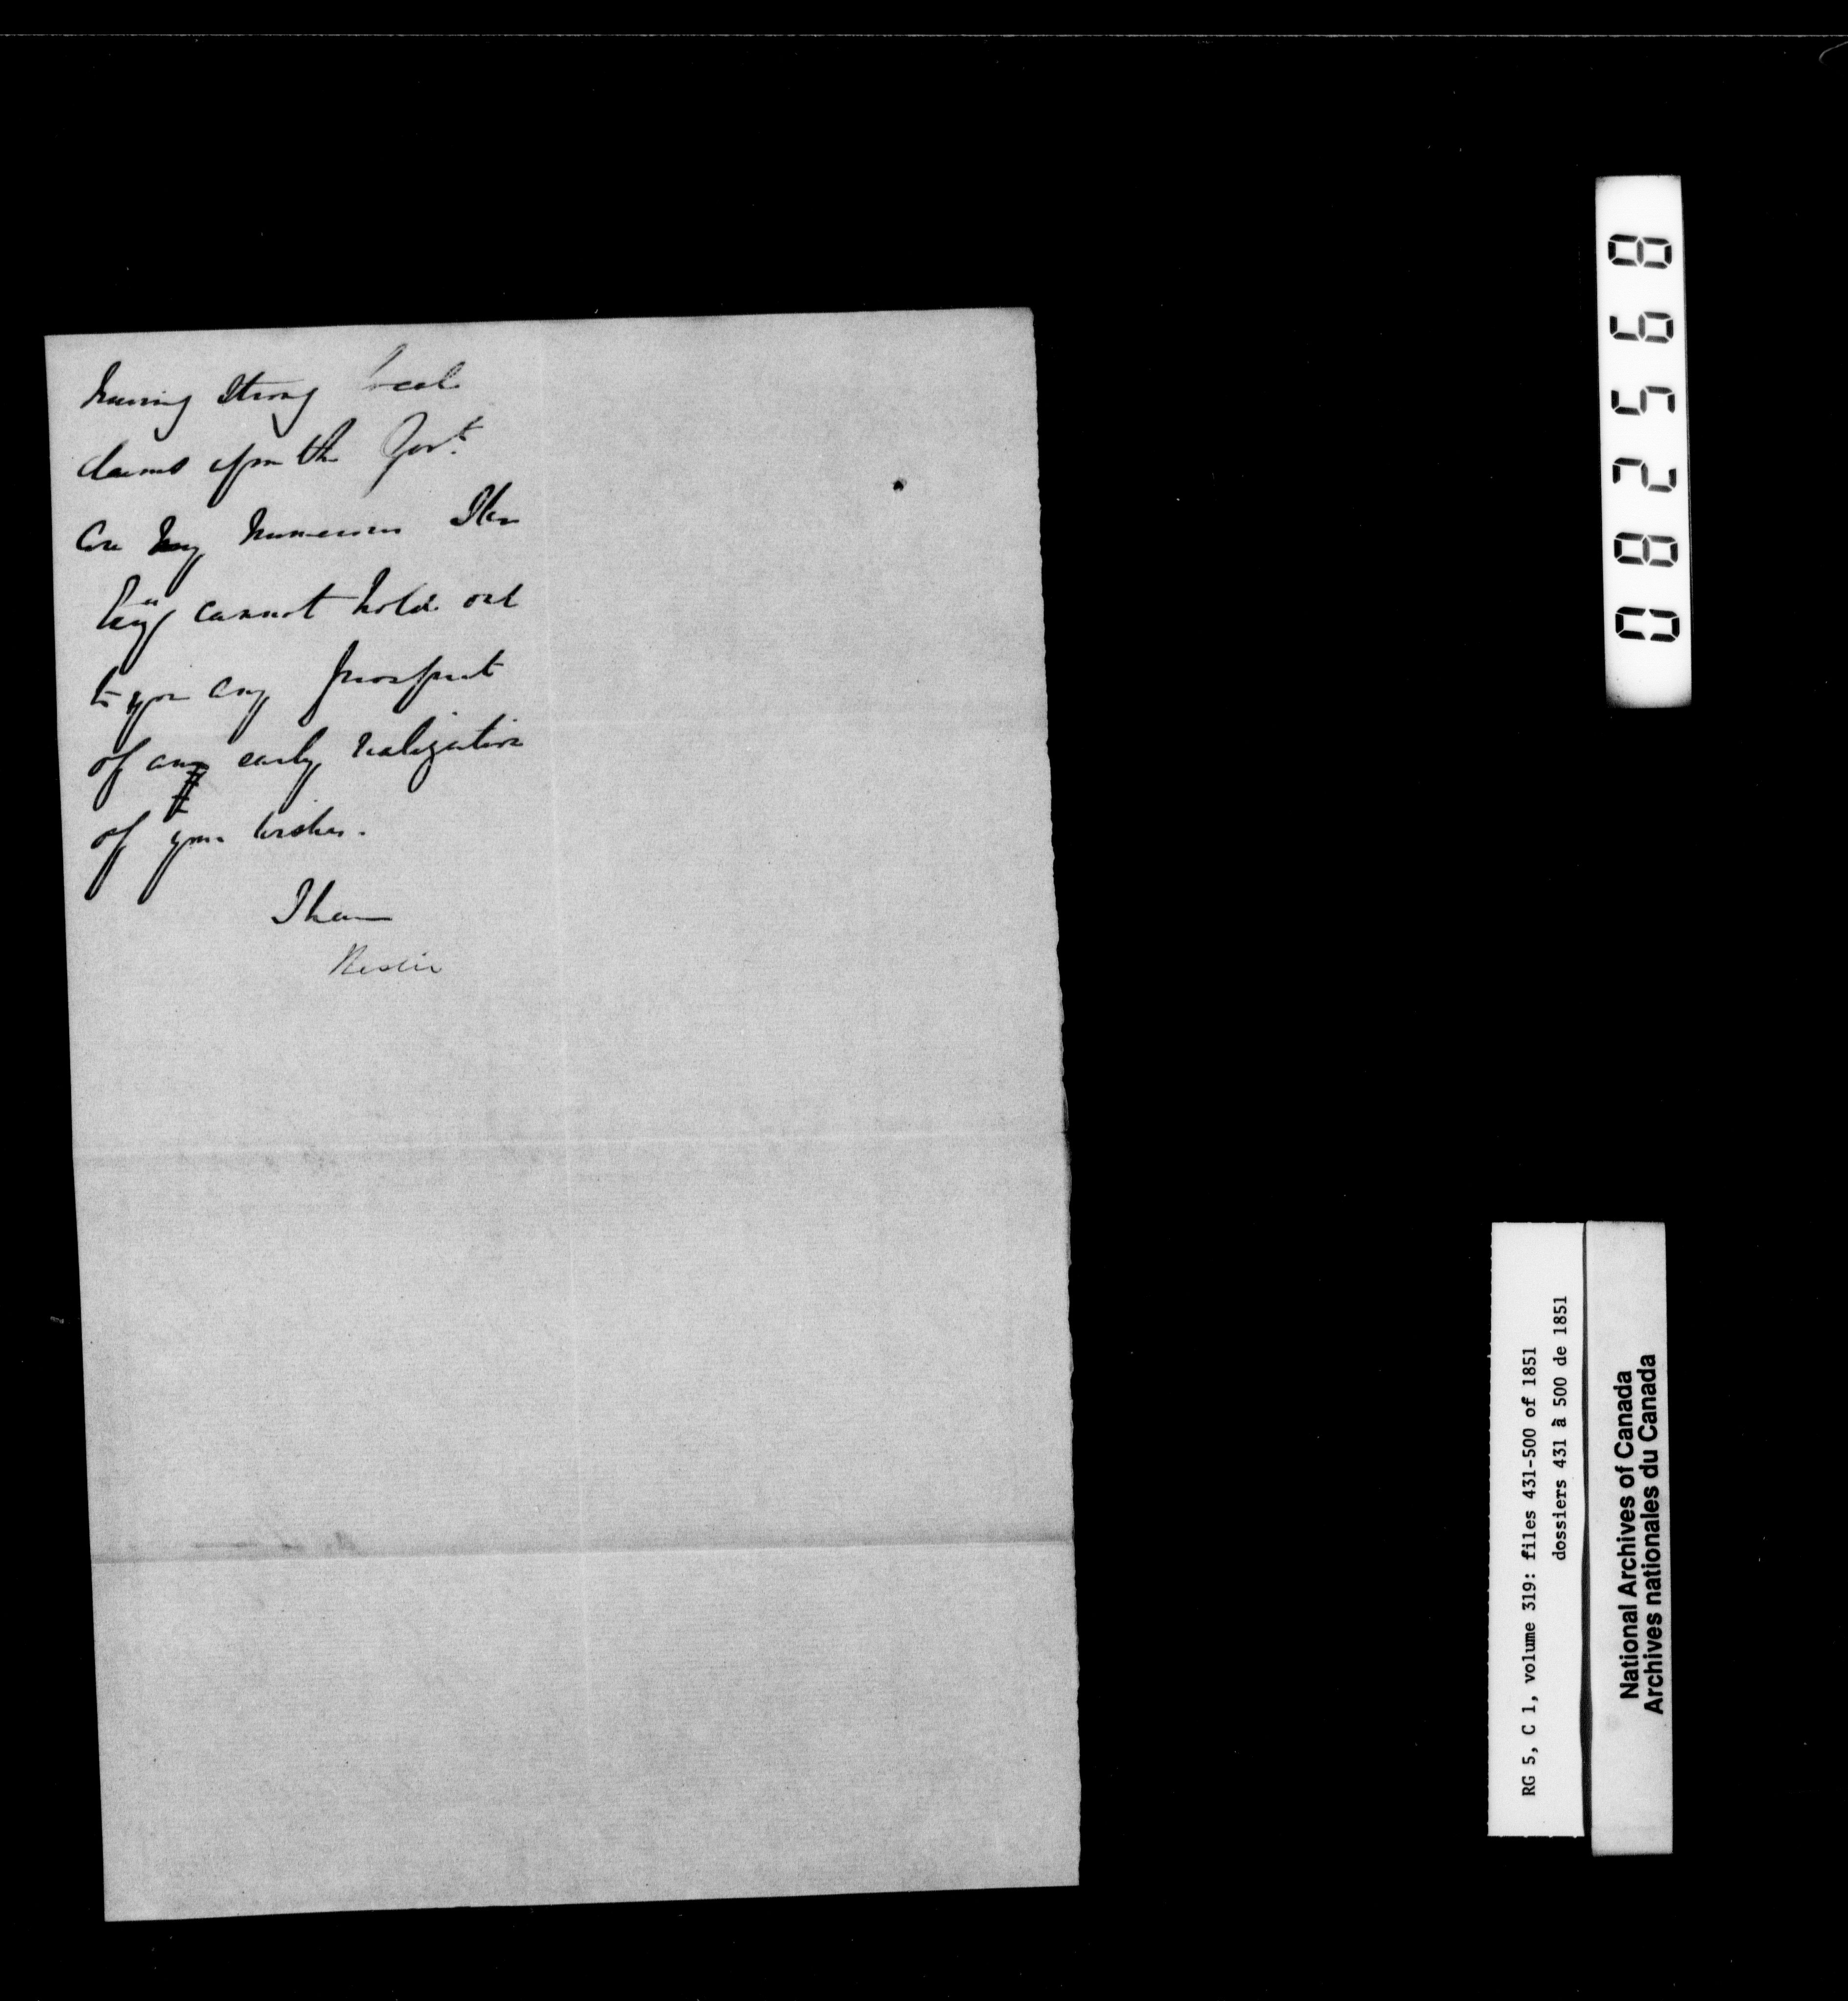 having strong local
claims upon the Govt.
are very numerous He
cannot hold out
to you any prospect
of any early realization
of your wishes.
I have
082568
RG 5, C 1, volume 319: files 431-500 of 1851
dossiers 431 à 500 de 1851
National Archives of Canada
Archives nationales du Canada